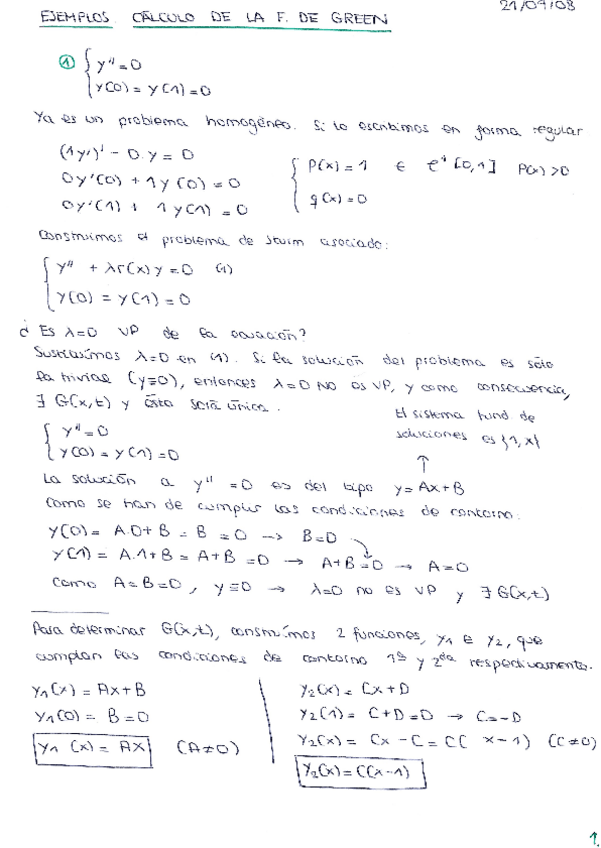 EJEMPLOS CÁLCULO DE LA F. DE GREEN
21/04/08
① { y'' = 0
y(0) = y(1) = 0
Ya es un problema homogéneo. Si lo escribimos en forma regular
(1y')' - 0.y = 0
0y'(0) + 1y(0) = 0
0y'(1) + 1y(1) = 0
{ P(x) = 1 ∈ C¹[0,1] P(x) > 0
q(x) = 0
Construimos el problema de Sturm asociado:
{ y'' + λr(x)y = 0 (1)
y(0) = y(1) = 0
¿ Es λ=0 VP de la ecuación?
Sustituímos λ=0 en (1). Si la solución del problema es sólo
la trivial (y≡0), entonces λ=0 NO es VP, y como consecuencia,
∃ G(x,t) y ésta será única.
{ y'' = 0
y(0) = y(1) = 0
El sistema fund de
soluciones es {1, x}
↑
La solución a y'' = 0 es del tipo y = Ax+B
Como se han de cumplir las condiciones de contorno:
y(0) = A.0+B = B = 0 → B=0
y(1) = A.1+B = A+B = 0 → A+B=0 → A=0
Como A=B=0, y≡0 → λ=0 no es VP y ∃ G(x,t)
Para determinar G(x,t), construímos 2 funciones, y₁ e y₂, que
cumplan las condiciones de contorno 1ª y 2da respectivamente.
y₁(x) = Ax+B
y₁(0) = B = 0
y₁(x) = AX (A≠0)
y₂(x) = Cx+D
y₂(1) = C+D = 0 → C=-D
y₂(x) = Cx - C = C(x-1) (C≠0)
y₂(x) = C(x-1)
1.